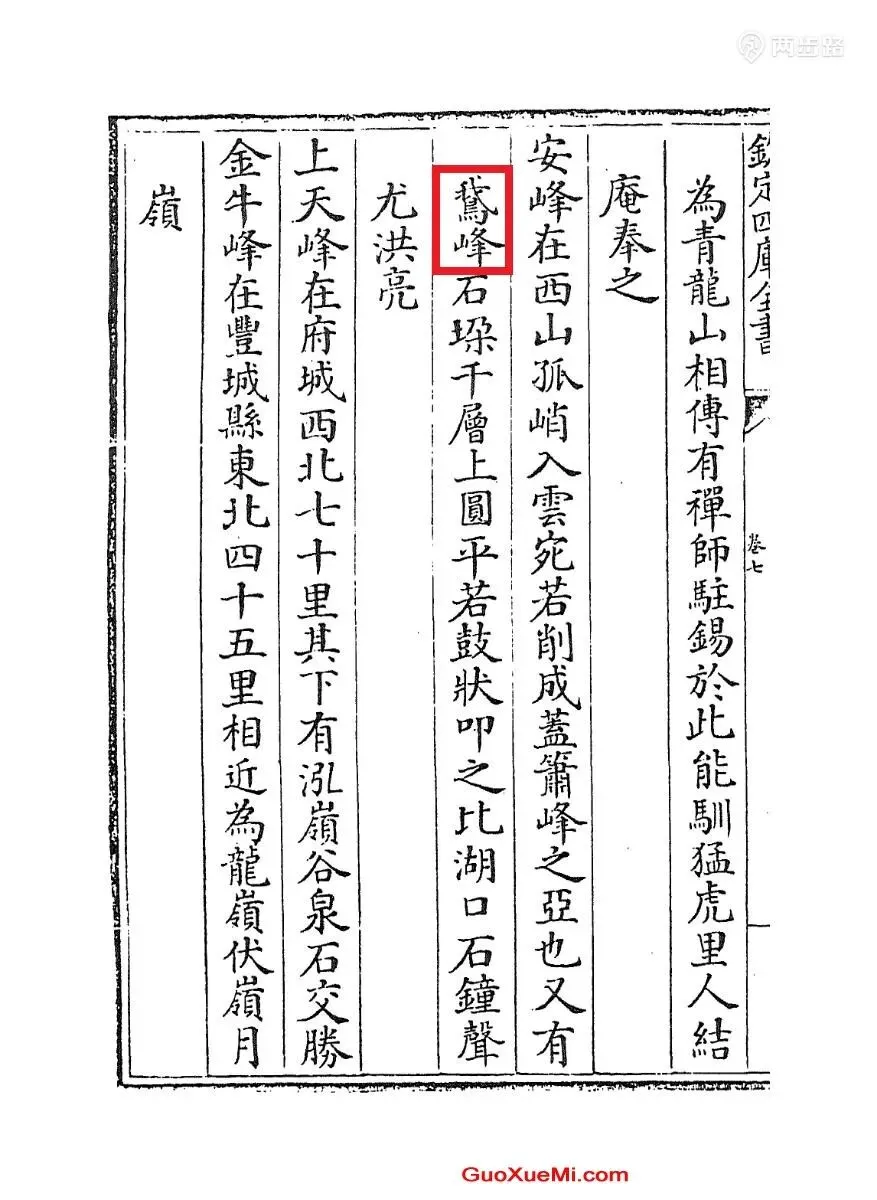 欽定四庫全書
卷七
為青龍山相傳有禪師駐錫於此能馴猛虎里人結
庵奉之
安峰在西山孤峭入雲宛若削成蓋簫峰之亞也又有
鵞峰石垜千層上圓平若鼓狀叩之比湖口石鐘聲
尤洪亮
上天峰在府城西北七十里其下有泓嶺谷泉石交勝
金牛峰在豐城縣東北四十五里相近為龍嶺伏嶺月
嶺
两步路
GuoXueMi.com